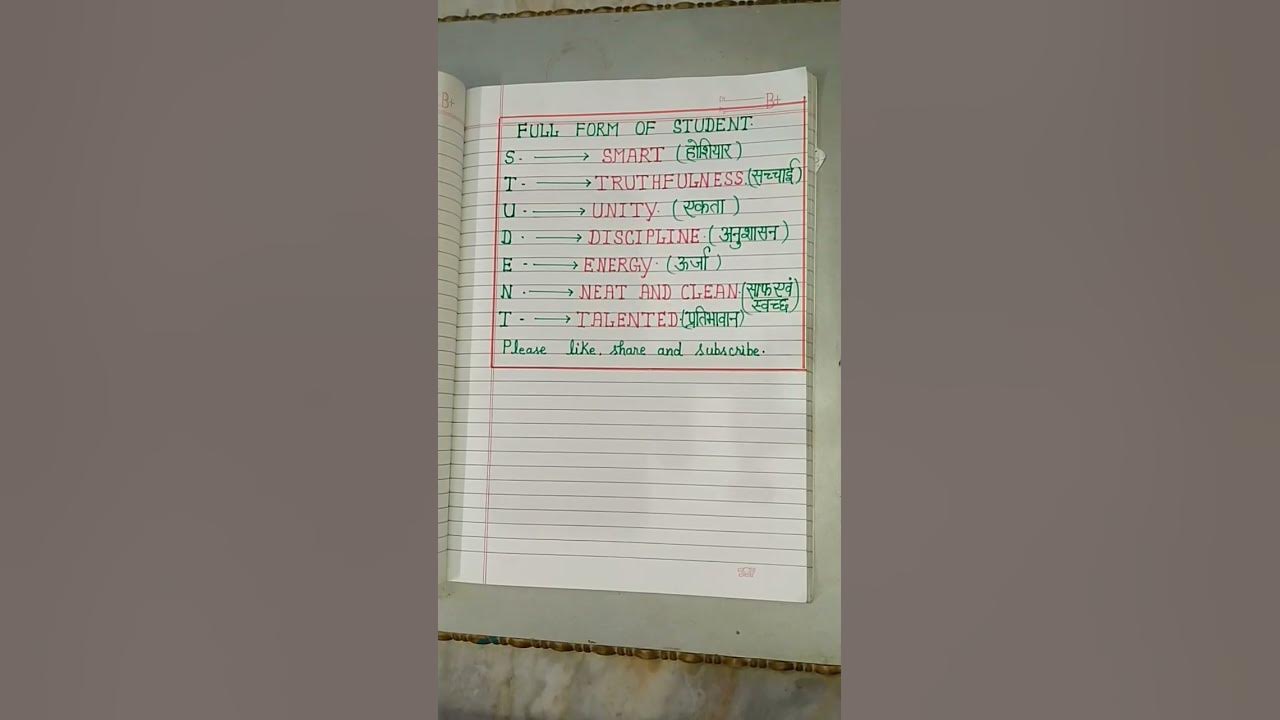 B+
B+
FULL FORM OF STUDENT.
S. → SMART (होशियार)
T. → TRUTHFULNESS. (सच्चाई)
U. → UNITY. (एकता)
D. → DISCIPLINE. (अनुशासन)
E. → ENERGY. (ऊर्जा)
N. → NEAT AND CLEAN. (साफ एवं
स्वच्छ)
T. → TALENTED. (प्रतिभावान)
Please like, share and subscribe.